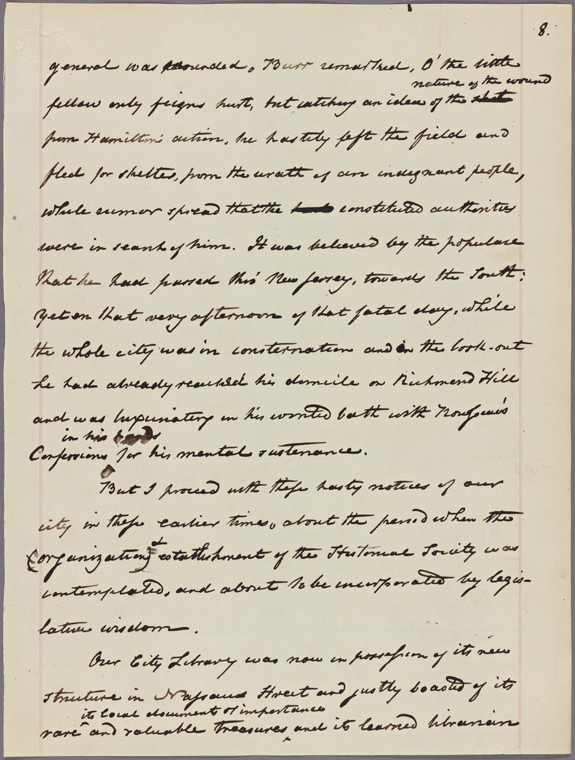 8.
general was wounded, Burr remarked, O' the little
nature of the wound
fellow only feigns hurt, but catching an idea of the shot
from Hamilton's action, he hastily left the field and
fled for shelter, from the wrath of an indignant people,
while rumor spread that the constituted authorities
were in search of him. It was believed by the populace
that he had passed thro' New Jersey, towards the South;
yet on that very afternoon of that fatal day, while
the whole city was in consternation and on the look-out
he had already reached his domicile on Richmond Hill
and was luxuriating in his wonted bath with Rousseau's
in his hands
Confessions for his mental sustenance.
But I proceed with these hasty notices of our
city in these earlier times, about the period when the
(organization) & establishment of the Historical Society was
contemplated, and about to be incorporated by legis-
lative wisdom.
Our City Library was now in possession of its new
structure in Nassau Street and justly boasted of its
its local documents of importance
rare and valuable treasures, and its learned librarian